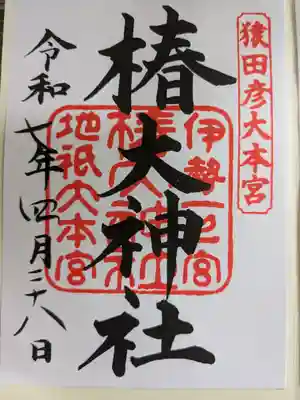 猿田彦大本宮
椿大神社
伊勢一之宮
椿大神社
地祇大本宮
令和七年四月二十八日